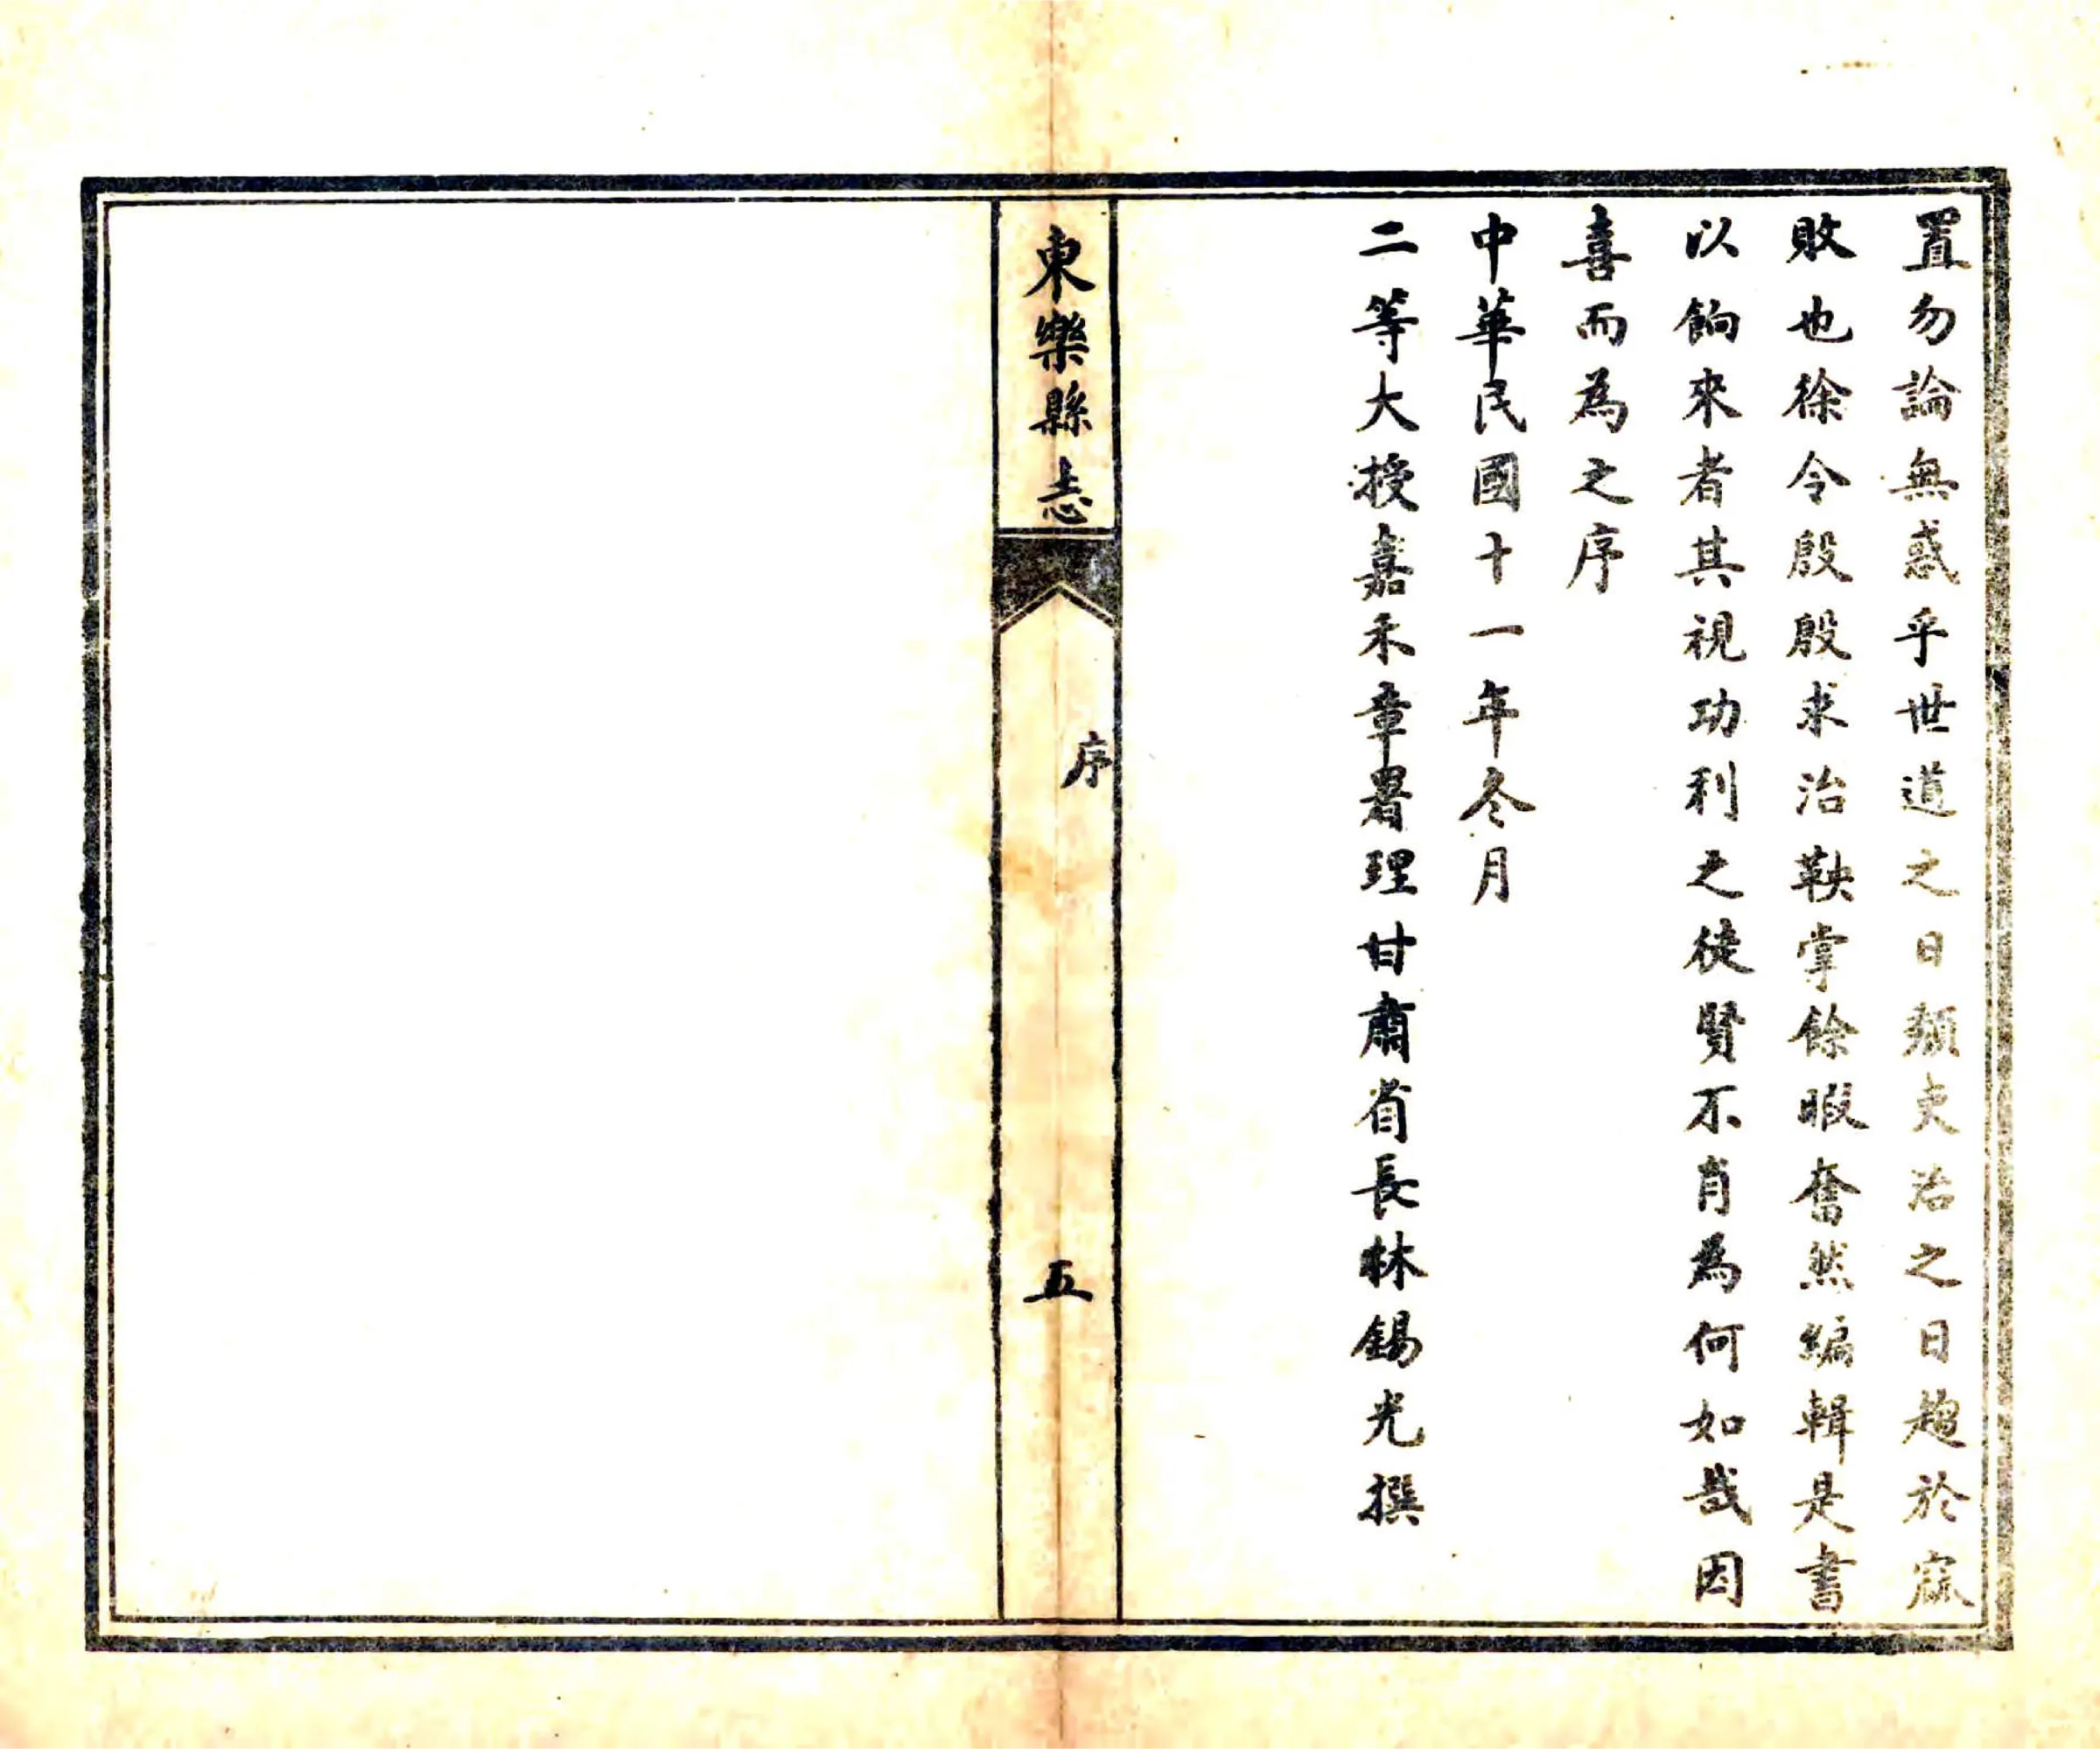 置勿論無惑乎世道之日頹吏治之日趨於窳
敗也徐令殷殷求治鞅掌餘暇奮然編輯是書
以餉來者其視功利之徒賢不肖為何如哉因
喜而為之序
中華民國十一年冬月
二等大授嘉禾章署理甘肅省長林錫光撰
東樂縣志
序
五